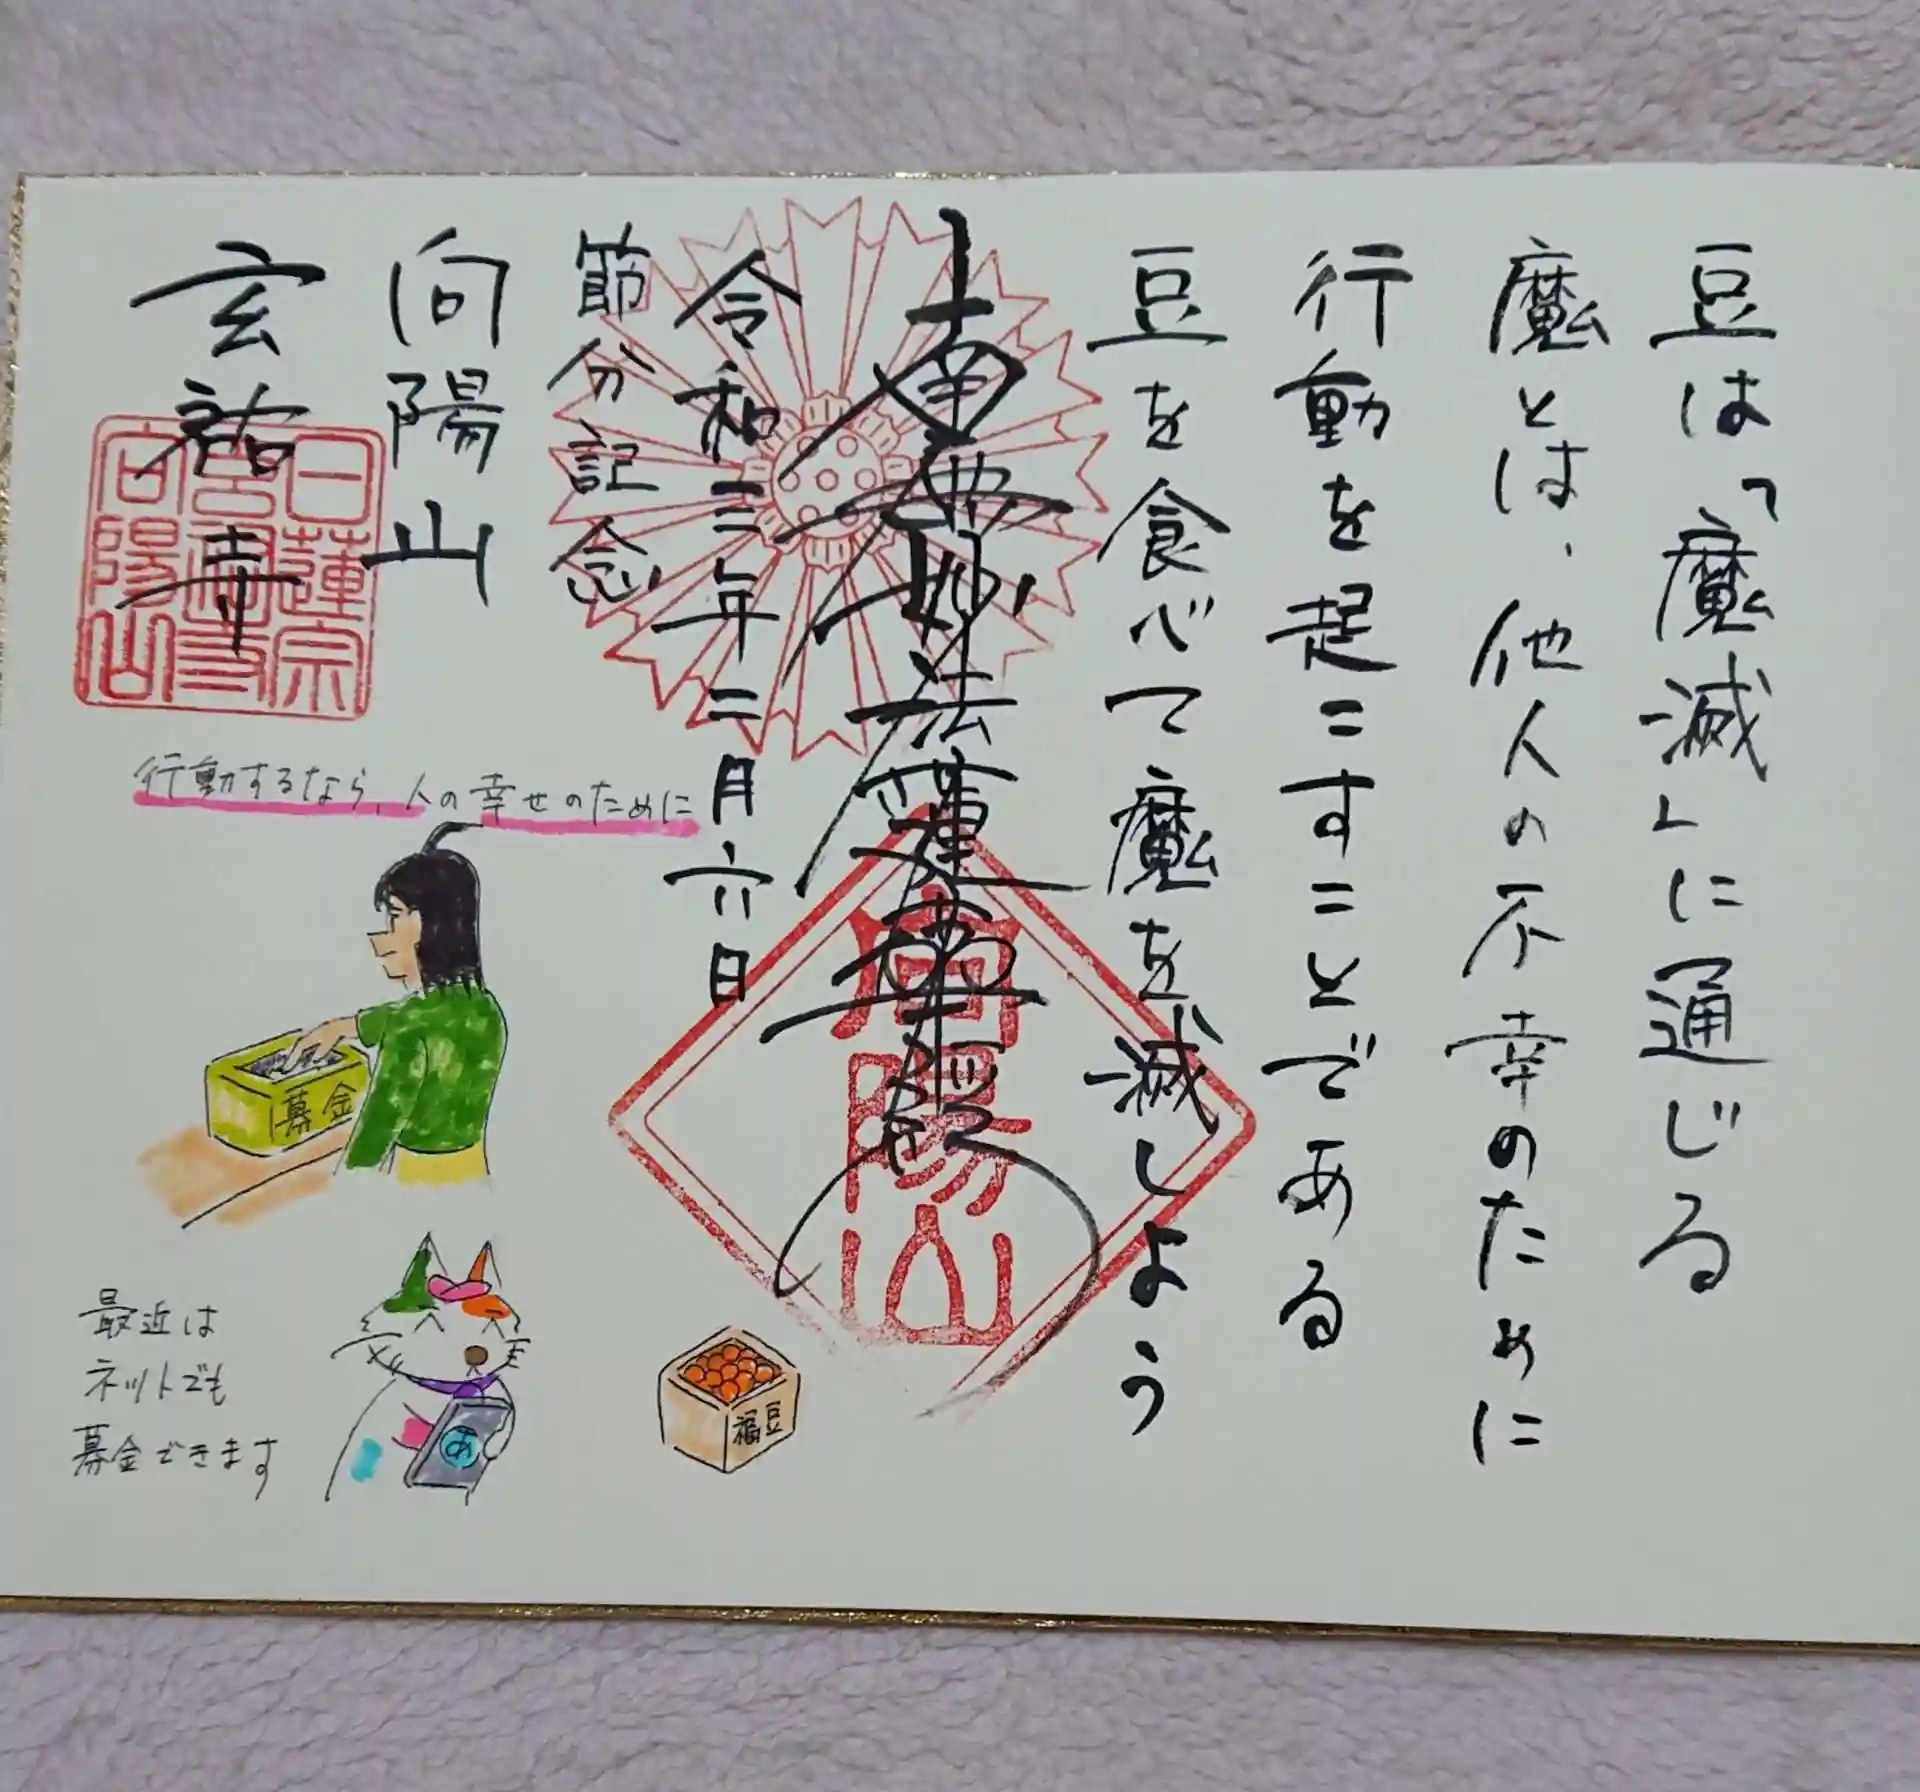 豆は「魔滅」に通じる
魔とは、他人の不幸のために
行動を起こすことである
豆を食べて魔を滅しよう
南無妙法蓮華経
令和三年二月六日
節分記念
向陽山
玄祐寺
日蓮宗
向陽山
向陽山
行動するなら、人の幸せのために
募金
最近は
ネットでも
募金できます
あ
福豆